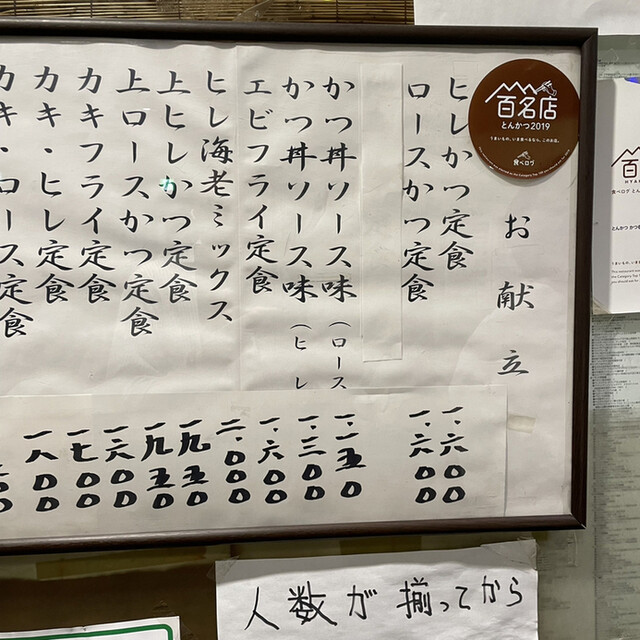 百名店
とんかつ 2019
うまいもの、いま食べるなら、このお店。
食べログ
お献立
ヒレかつ定食 一、六〇〇
ロースかつ定食 一、六〇〇
かつ丼ソース味(ロース 一、一五〇
かつ丼ソース味(ヒレ 一、三〇〇
エビフライ定食 一、六〇〇
ヒレ海老ミックス 二、〇〇〇
上ヒレかつ定食 一九五〇
上ロースかつ定食 一九五〇
カキフライ定食 一六〇〇
カキ・ヒレ定食 一七〇〇
カキ・ロース定食 一八〇〇
人数が揃ってから
百
食べログ